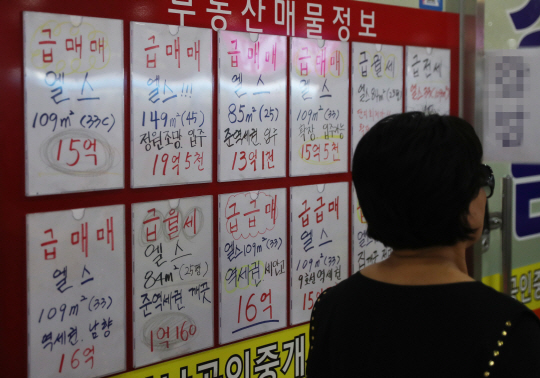 부동산매물정보
급매매
엘스
109m² (33C)
15억
급매매
엘스!!!
149m² (45)
정원조망 입주
19억5천
급매매
엘스
85m² (25)
준역세권, 입주
13억1천
급매매
엘스
109m² (33)
확장, 입주가능
15억5천
급월세
급전세
급매매
엘스
109m² (33)
역세권, 남향
16억
급월세
엘스
84m² (25평)
준역세권 깨끗
1억160
급급매
엘스109m² (33)
역세권 세안고
16억
급급매
엘스
109m² (33)
공인중개